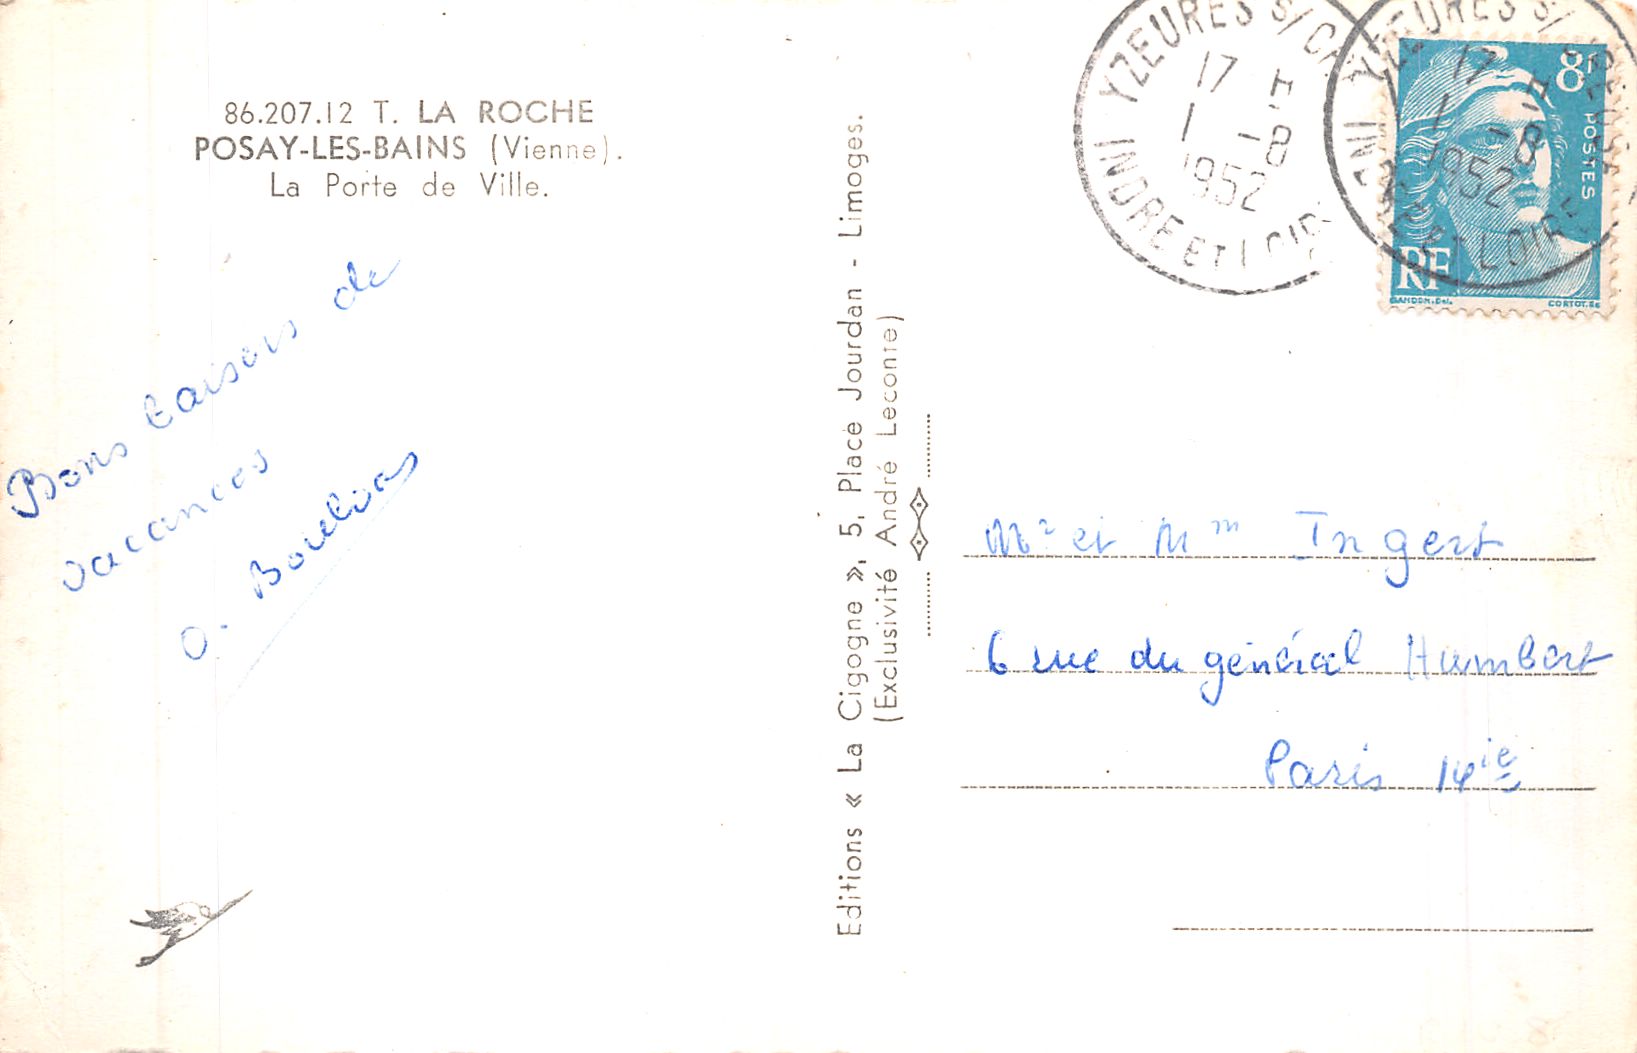 86.207.12 T. LA ROCHE
POSAY-LES-BAINS (Vienne).
La Porte de Ville.
Bons baisers de
vacances
O.
Editions « La Cigogne », 5, Place Jourdan - Limoges.
(Exclusivité André Leconte)
YZEURES S/
17 H
1 -8
1952
INDRE ET LOIRE
YZEURES S/
17 H
1 -8
1952
INDRE ET LOIRE
8F
POSTES
RF
GANDON.Del.
CORTOT.Sc
Mr et Mm Ingert
6 rue du général Humbert
Paris 14ie